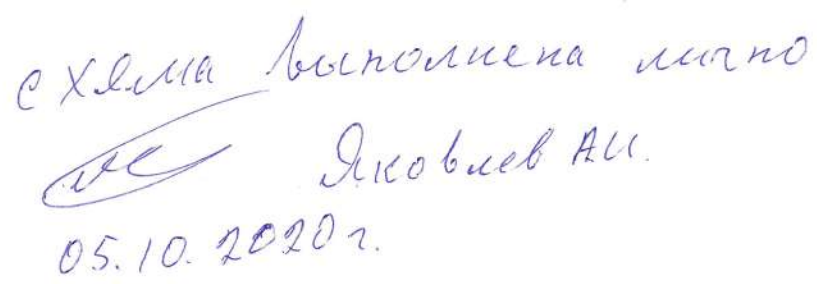 схема выполнена лично
Яковлев А.И.
05.10.2020 г.